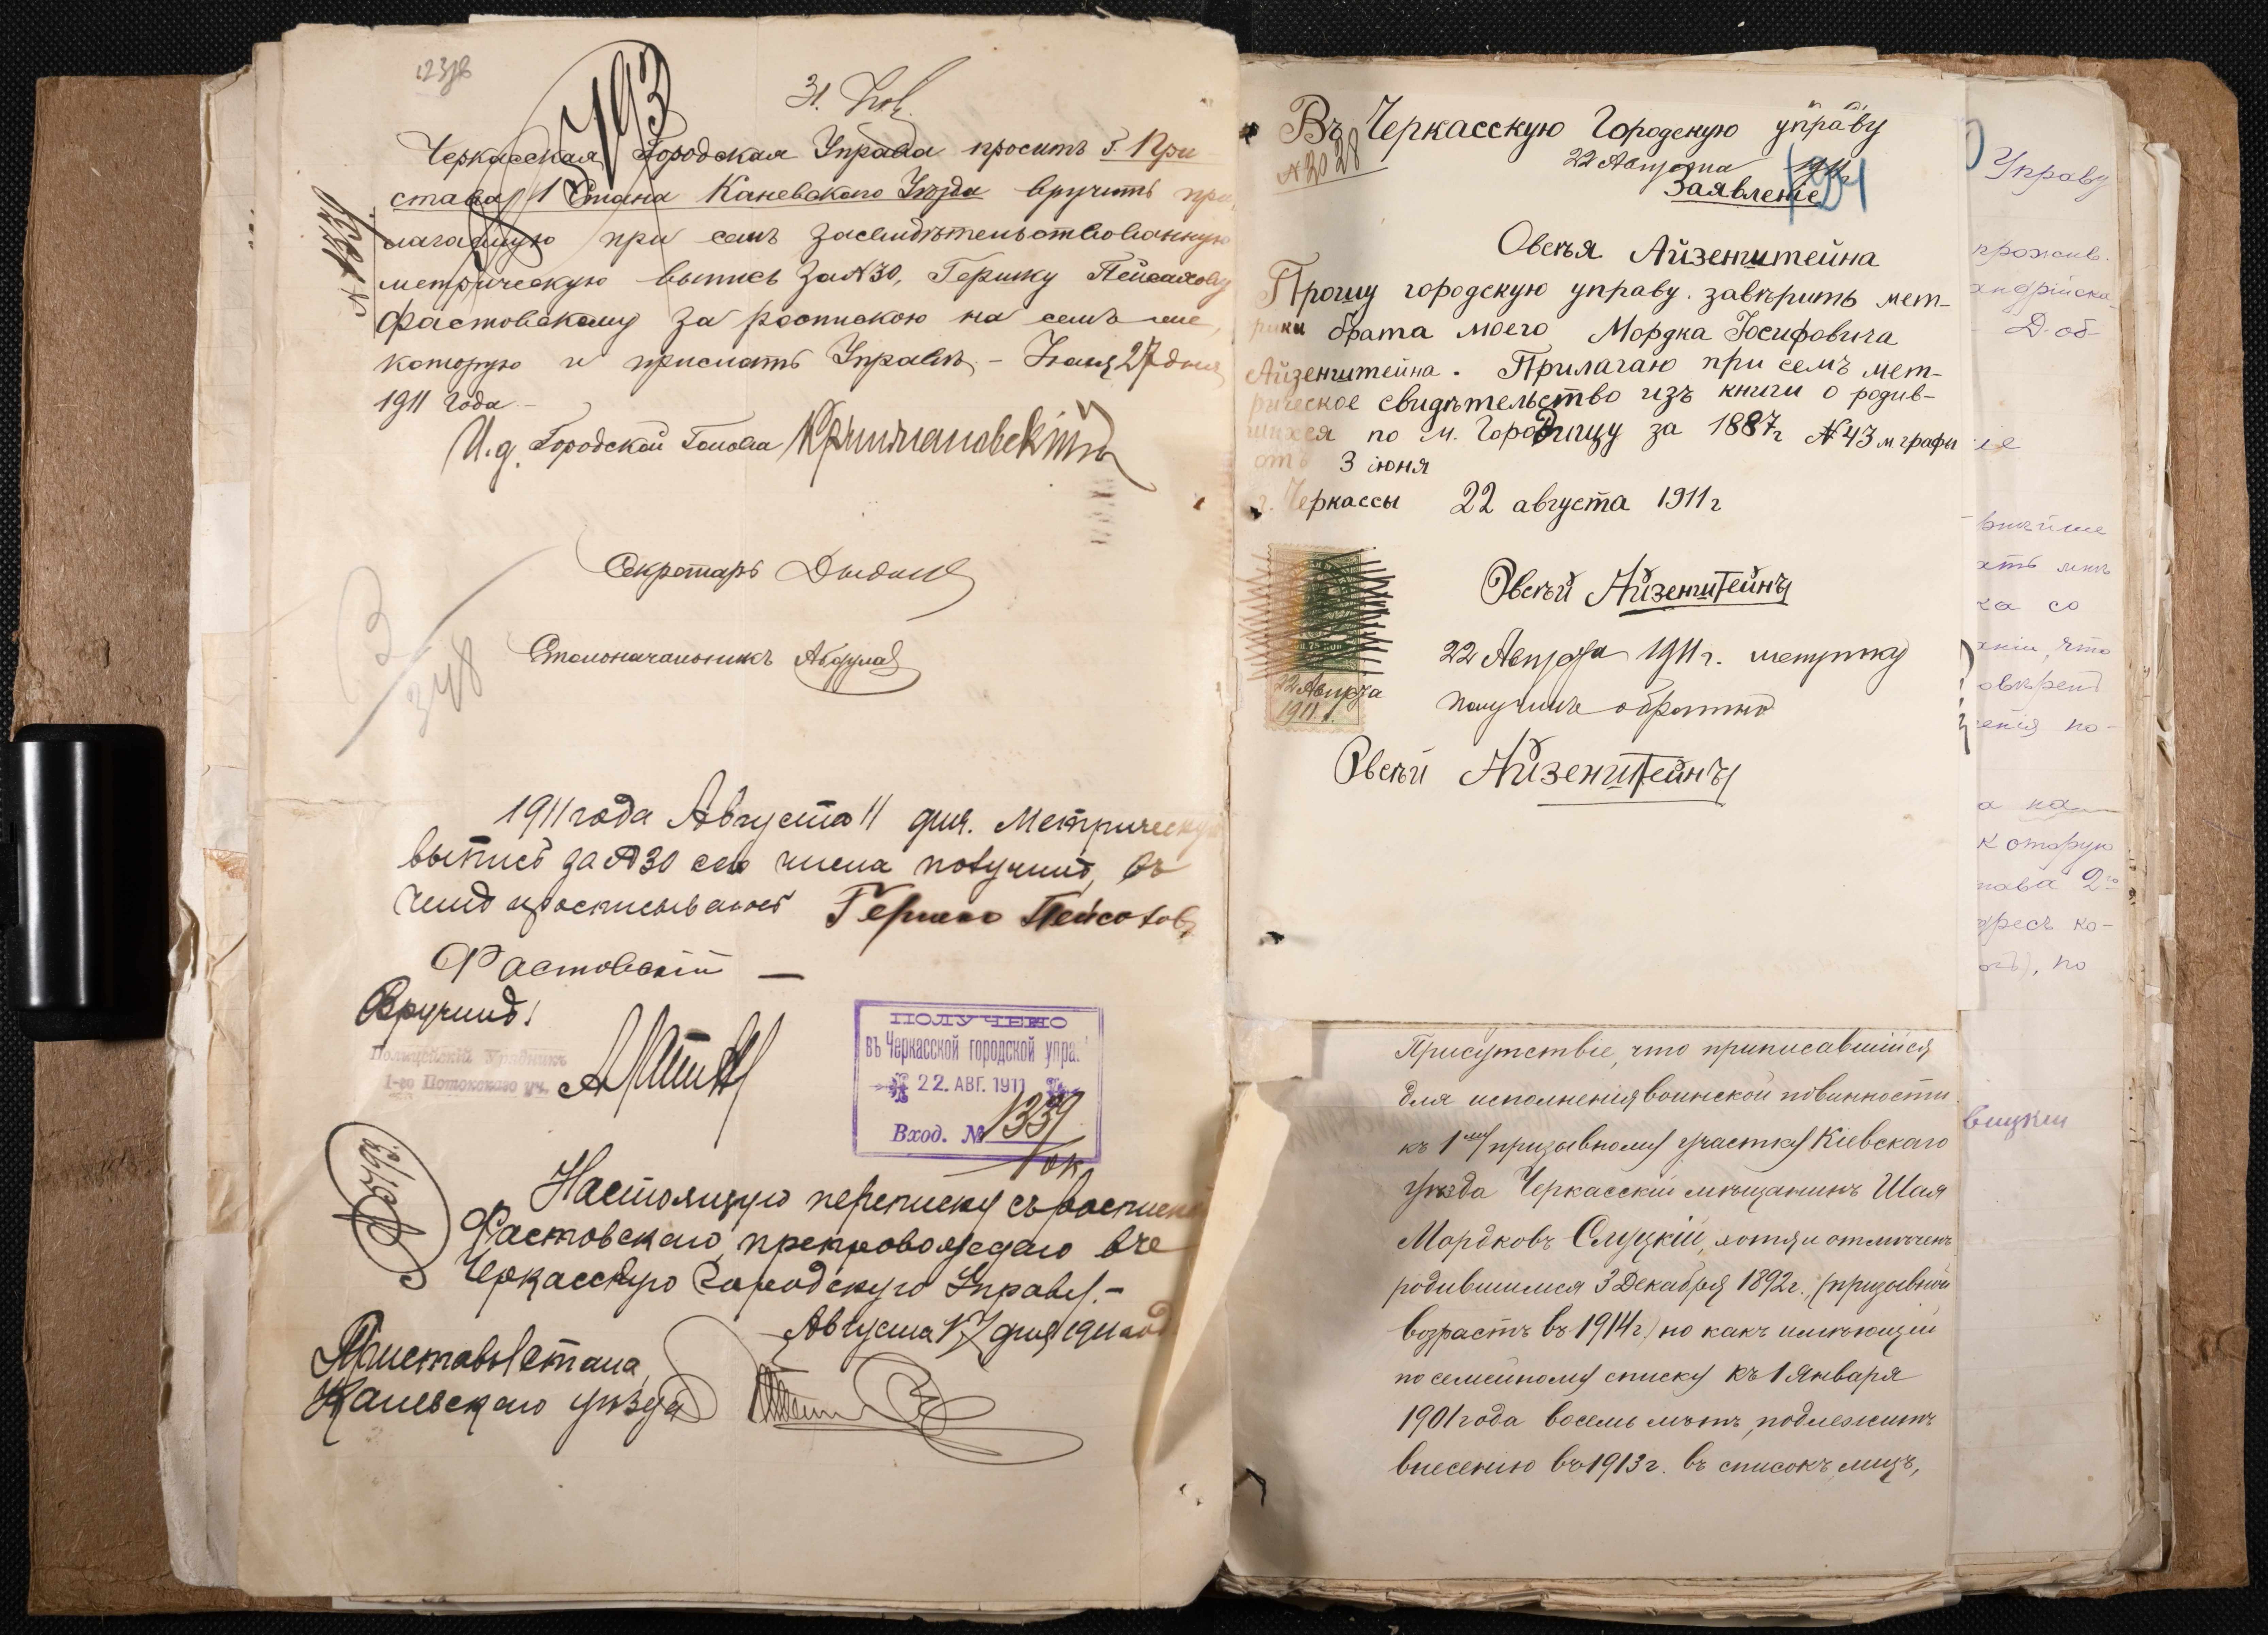 793
31.
Черкасская Городская Управа проситъ г. При
става 1 Стана Каневскаго Уѣзда вручить при
лагаемую при семъ засвидѣтельствованную
метрическую выпись за №30, Гершку Пейсахову
Фастовскому за роспискою на семъ же,
которую и прислать Управѣ. – Іюля 27 дня
1911 года. –
№ 1339
И.д. Городской Голова
Секретарь
Столоначальникъ
3
348
1911 года Августа 11 дня. Метрическую
выпись за №30 сего числа получилъ, въ
чемъ и росписываюсь Гершко Пейсаховъ
Фастовскій —
Вручилъ:
Полицейскій Урядникъ
1-го Потокскаго уч.
ПОЛУЧЕНО
въ Черкасской городской упра.
22. АВГ. 1911
Вход. № 1339
Настоящую переписку съ роспиской
Фастовскаго, препровождаю въ
Черкасскую Городскую Управу. –
Августа 17 дня 1911 год
Приставъ 1 стана
Каневскаго уѣзда
Въ Черкасскую Городскую управу
№ 2028
22 Августа 1911 г.
Заявленіе
Овсѣя Айзенштейна
Прошу городскую управу завѣрить мет-
рики брата моего Мордка Іосифовича
Айзенштейна. Прилагаю при семъ мет-
рическое свидѣтельство изъ книги о родив-
шихся по м. Городищу за 1887 г № 43 м графы
отъ 3 іюня
г. Черкассы 22 августа 1911 г
Овсѣй Айзенштейнъ
22 Августа 1911
22 Августа 1911 г. метрику
получилъ обратно
Овсѣй Айзенштейнъ
Присутствіе, что приписавшійся
для исполненія воинской повинности
къ 1му призывному участку Кіевскаго
уѣзда Черкасскій мѣщанинъ Шая
Мордковъ Слуцкій, хотя и отмѣченъ
родившимся 3 Декабря 1892 г., (призывной
возрастъ въ 1914 г.) но какъ имѣющій
по семейному списку къ 1 Января
1901 года восемь лѣтъ, подлежитъ
внесенію въ 1913 г. въ списокъ лицъ,
Управу
прожив.
Д. об-
ка со
что
енія по-
а на
которую
става 2го
дресъ ко-
по